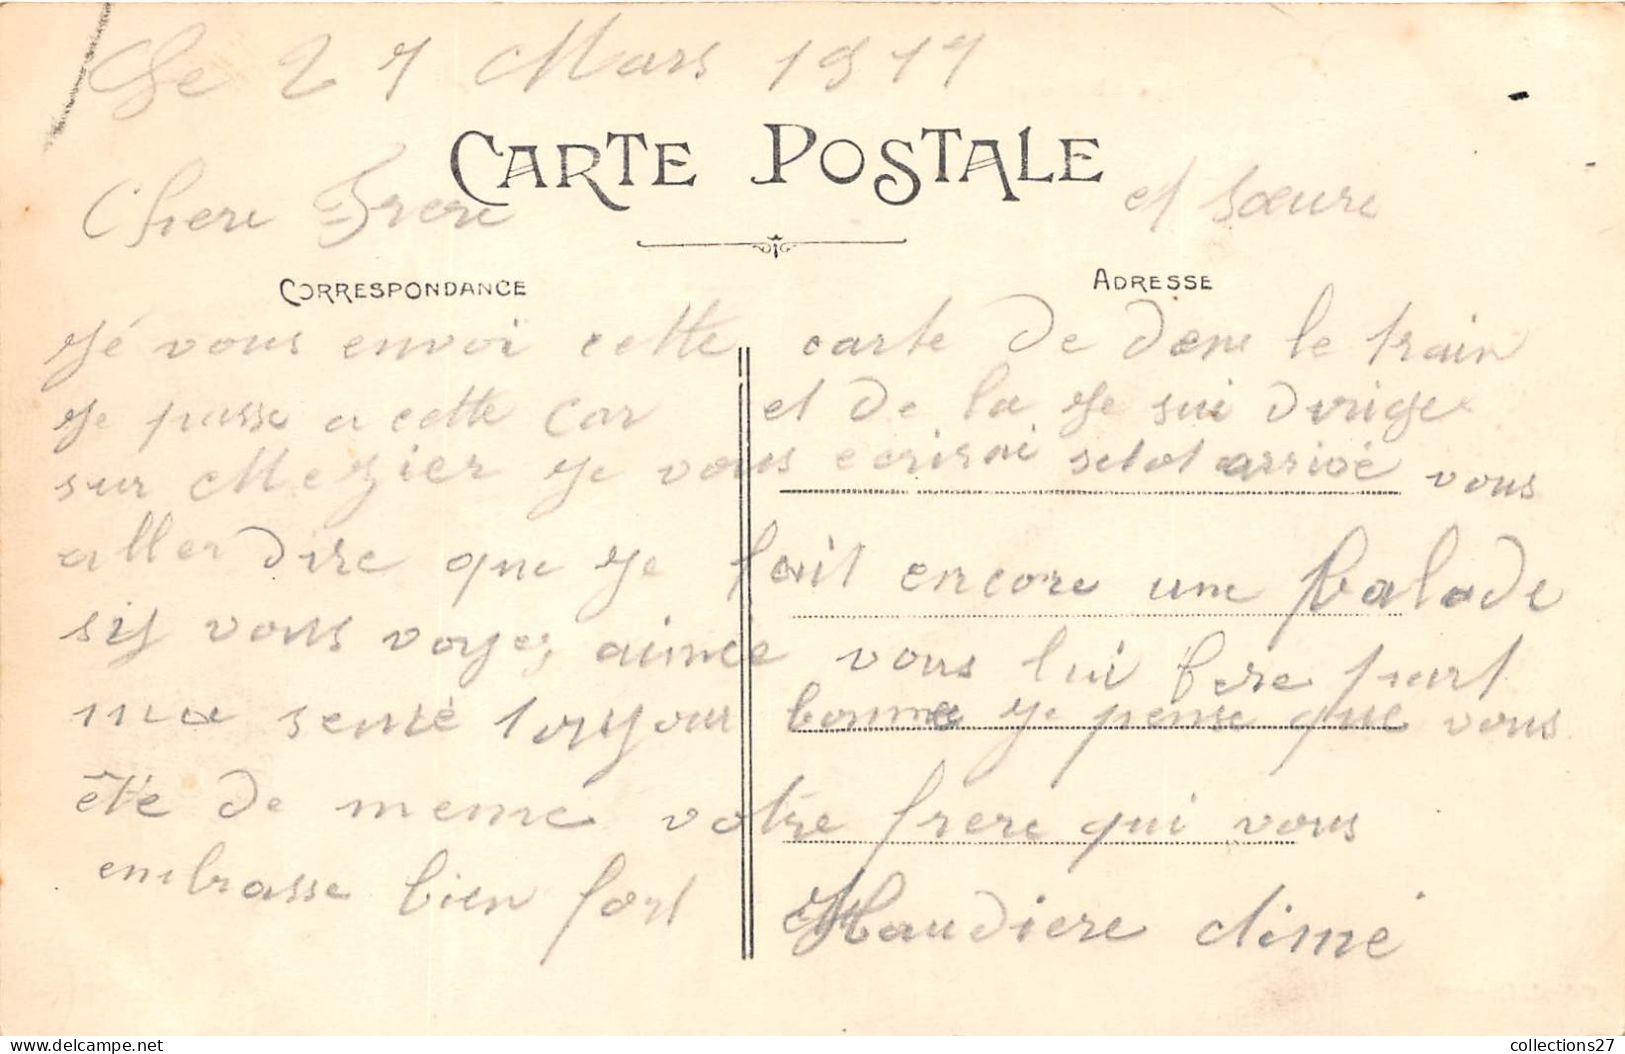 Le 27 Mars 1917
CARTE POSTALE
Chere Frere et Sœure
CORRESPONDANCE
ADRESSE
Jé vous envoi cette carte de dans le train
Je passe a cette Car et de la Je sui dirige
sur Mezier Je vous ecrirai sitot arrivé vous
aller dire que Je fait encore une balade
sij vous voyez aimée vous lui fere part
ma senté toujour bonne Je pense que vous
été de meme votre frere qui vous
embrasse bien fort
collections27